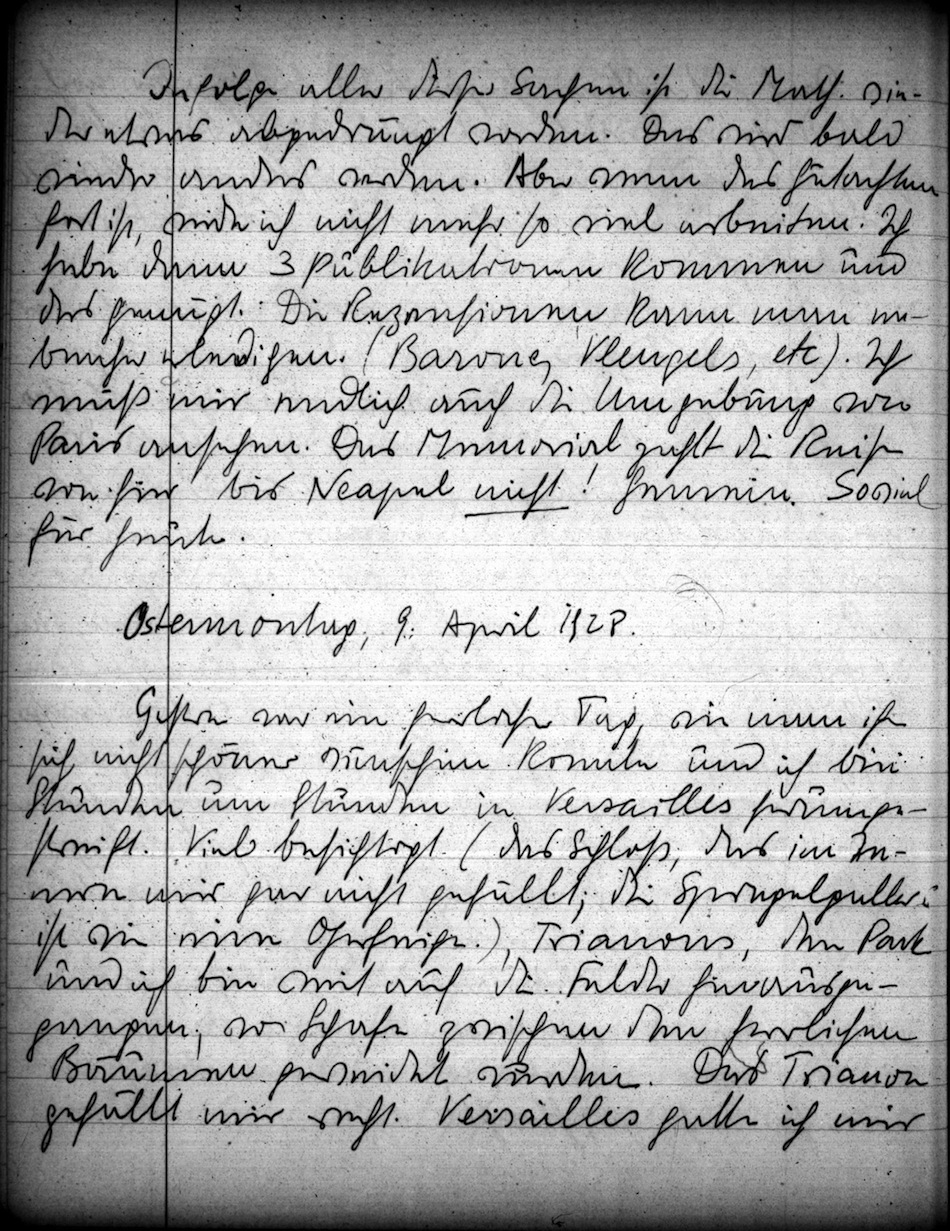 Infolge aller dieser Sachen ist die Math. wie-
der etwas abgedrängt worden. Das wird bald
wieder anders werden. Aber wenn das Gutachten
fort ist, werde ich nicht mehr so viel arbeiten. Ich
habe dann 3 Publikationen kommen und
das genügt. Die Rezensionen kann man ne-
benher erledigen. (Barone, Vleugels, etc). Ich
muß mir endlich auch die Umgebung von
Paris ansehen. Das Memorial zahlt die Reise
von hier bis Neapel nicht! Gemein. Soviel
für heute.
Ostermontag, 9. April 1928.
Gestern war ein herrlicher Tag, wie man ihn
sich nicht schöner wünschen konnte und ich bin
Stunden um Stunden in Versailles herumge-
streift. Viel besichtigt (das Schloß, das im In-
nern mir gar nicht gefällt; die Spiegelgallerie
ist wie eine Ohrfeige.), Trianons, den Park
und ich bin weit auf die Felder hinausge-
gangen, wo Schafe zwischen den herrlichen
Bäumen geweidet wurden. Das Trianon
gefällt mir sehr. Versailles hatte ich mir